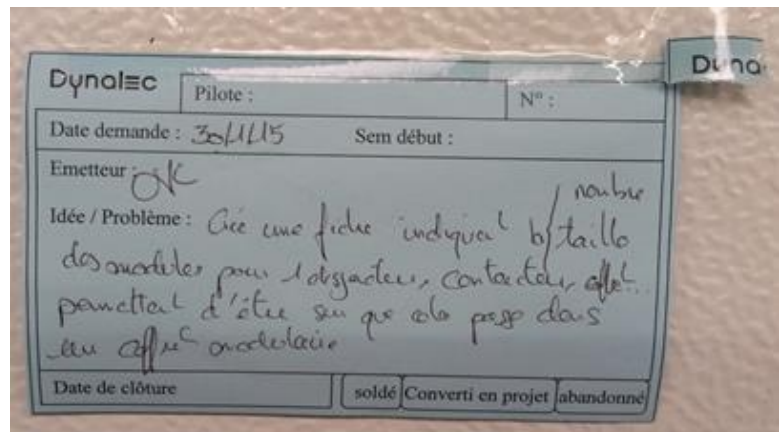 Dynalec
Duna
Pilote :
N° :
Date demande : 30/1/15 Sem début :
Emetteur :
nombre
Idée / Problème : Crée une fiche indiquant la taille
des modules pour 1 disjoncteur, contacteur,
permettant d'être sur que cela passe dans
un coffret modulaire
Date de clôture
soldé Converti en projet abandonné